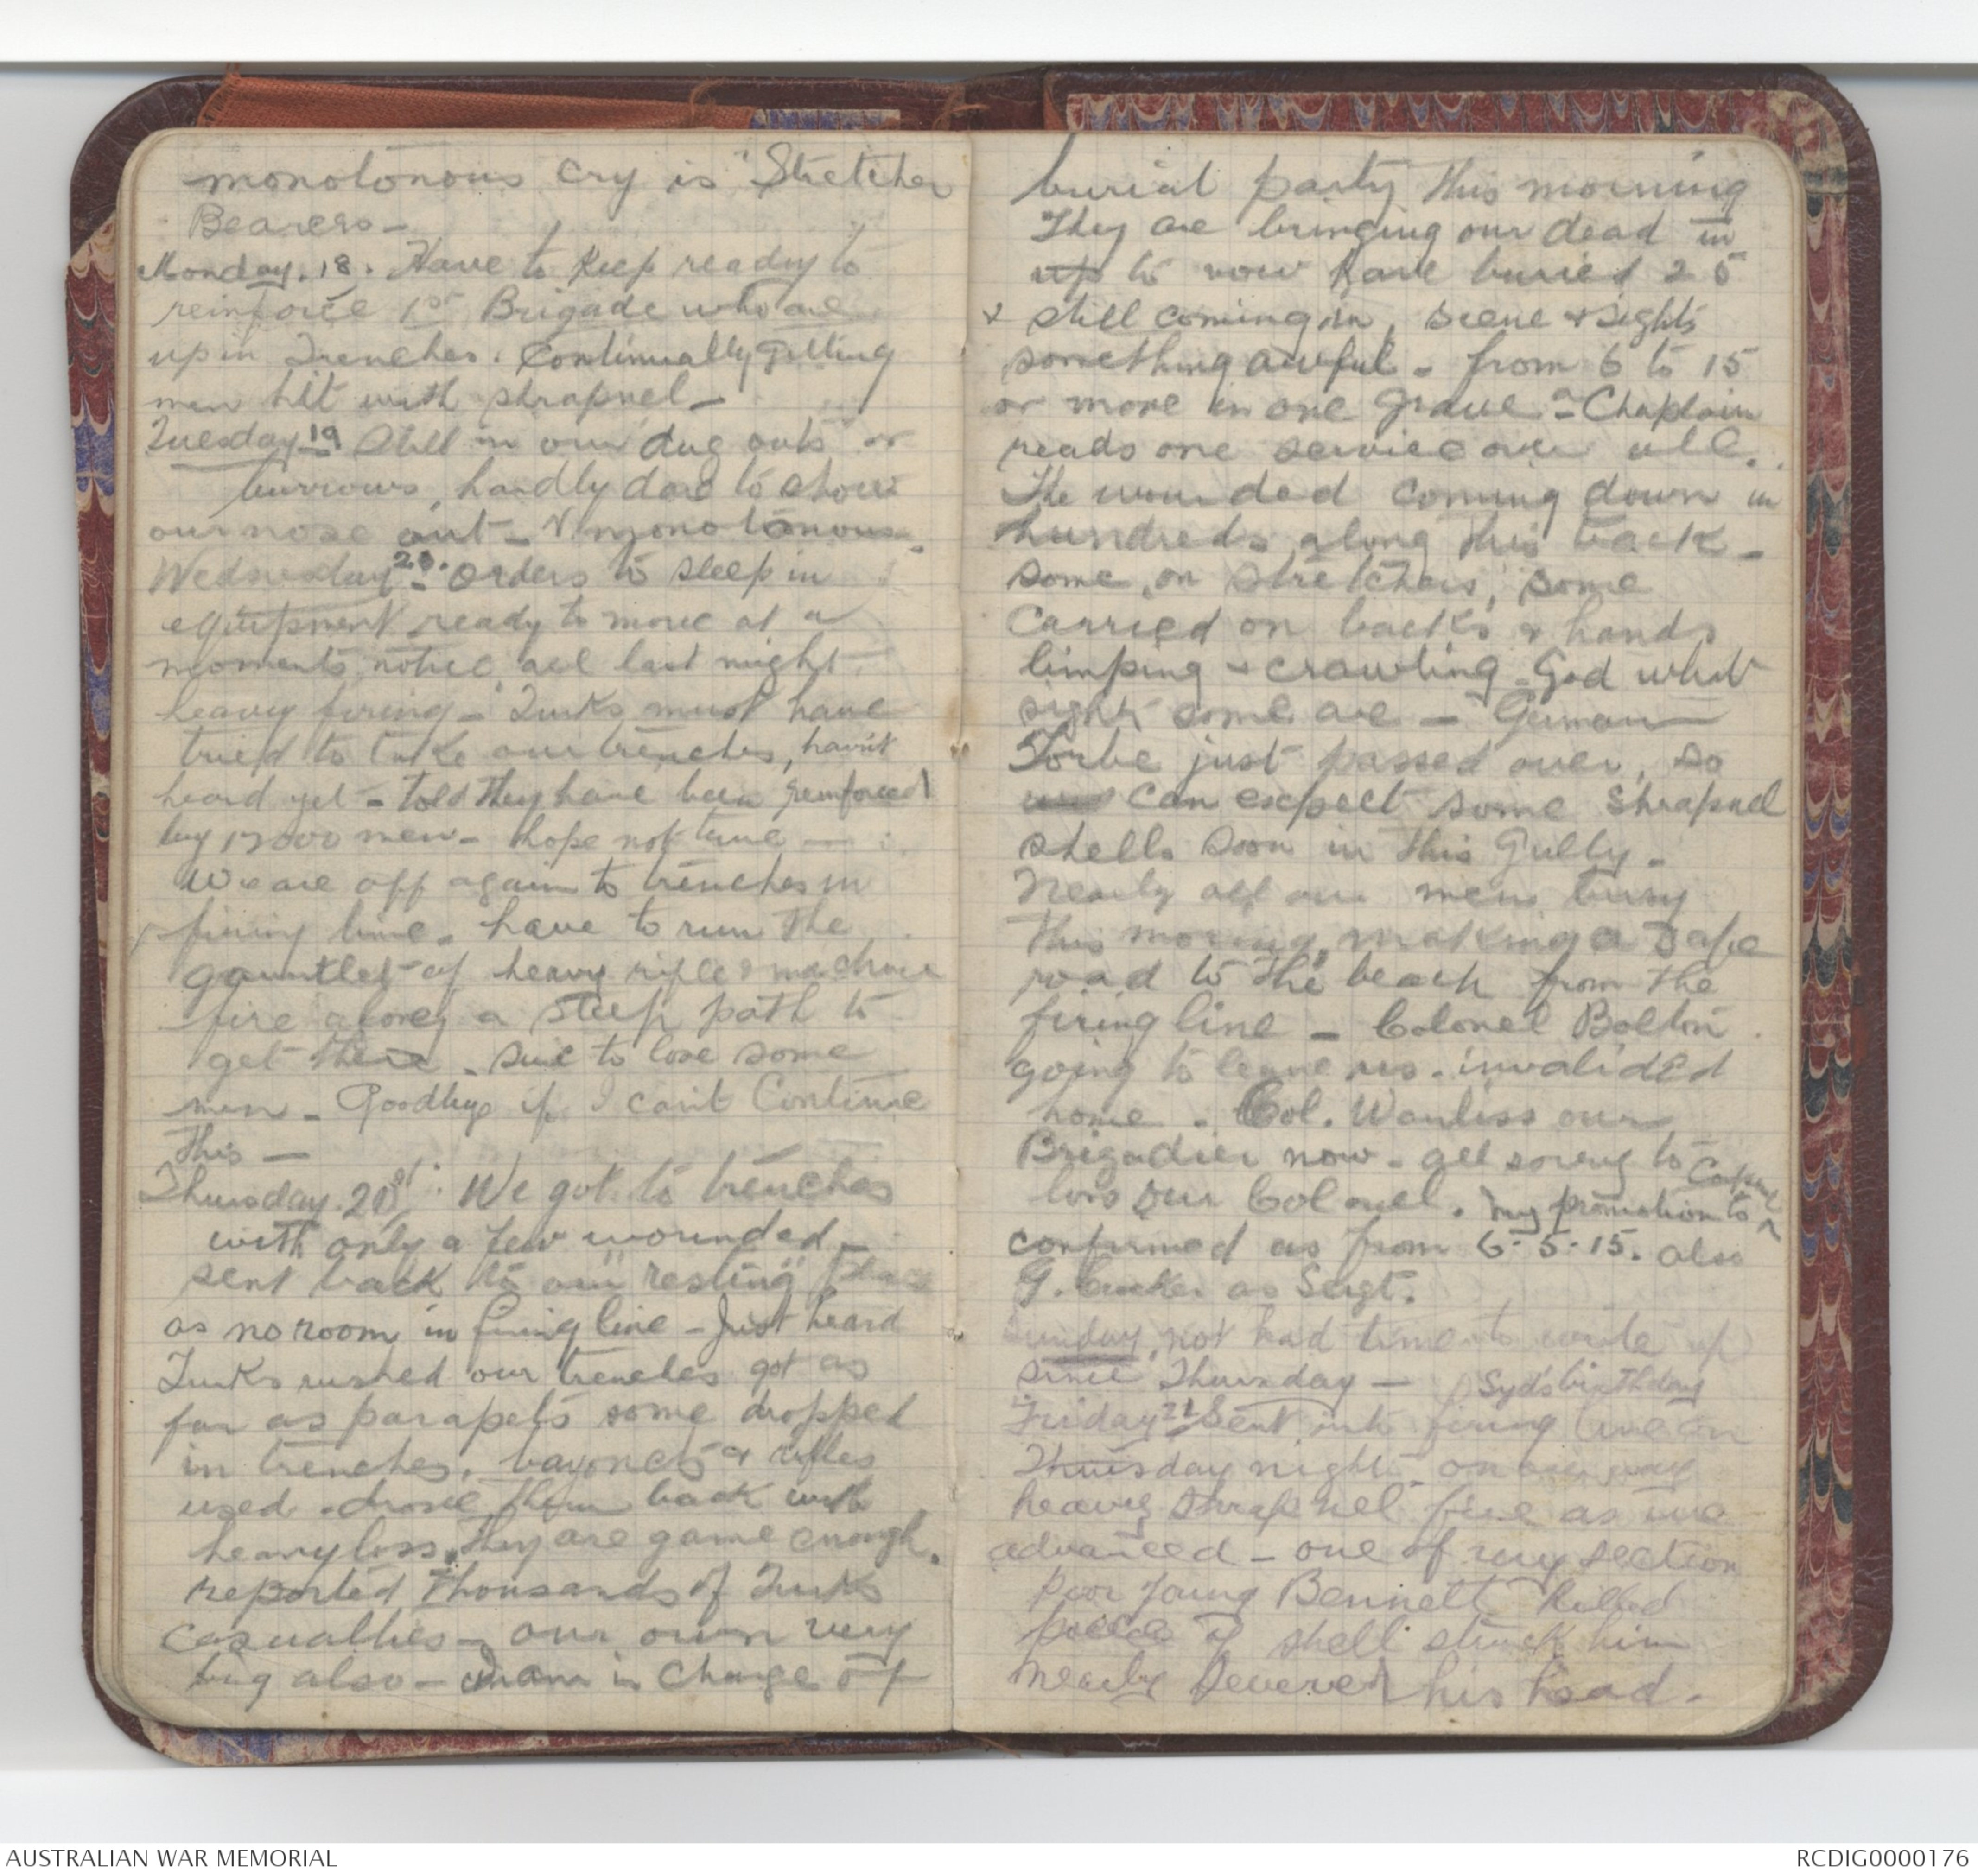 monotonous cry is "Stretcher
Bearers -
Monday. 18. Have to keep ready to
reinforce 1st Brigade who are
up in Trenches. Continually getting
men hit with shrapnel -
Tuesday 19 Still in our dug outs or
burrows, hardly dare to show
our nose out - V. monotonous.
Wednesday 20. Orders to sleep in
equipment ready to move at a
moments notice, all last night
heavy firing - Turks must have
tried to take our trenches, havn't
heard yet - told they have been reinforced
by 17000 men - hope not true -
We are off again to trenches in
firing line. have to run the
gauntlet of heavy rifle & machine
fire along a steep path to
get there. sure to lose some
men - Goodbye if I can't Continue
this -
Thursday. 20st. We got to trenches
with only a few wounded -
sent back to our "resting" place
as no room in firing line - Just heard
Turks rushed our trenches got as
far as parapets some dropped
in trenches, bayonets & rifles
used. drove them back with
heavy loss. they are game enough.
reported thousands of Turks
casualties - our own very
big also - am in charge of
burial party this morning
They are bringing our dead in
up to now have buried 25
& still coming in, scene & sights
something awful - from 6 to 15
or more in one grave - Chaplain
reads one service over all.
The wounded coming down in
hundreds along this track -
some on stretchers, some
carried on backs & hands
limping & crawling - God what
sights some are - German
Torbe just passed over, so
can expect some Shrapnel
shells soon in this Gully -
Nearly all our men busy
this morning, making a safe
road to the beach from the
firing line - Colonel Bolton
going to leave us. invalided
home. Col. Wanliss our
Brigadier now - all sorry to
loss our Colonel. my promotion to Corporal
confirmed as from 6-5-15. also
G. Tucker as Sergt.
Sunday, not had time to write up
since Thursday - Syd's birthday
Friday 21 Sent into firing line on
Thursday night - on our way
heavy shrapnel fire as we
advanced - one of my section
poor young Bennett killed
piece of shell struck him
nearly severed his head.
AUSTRALIAN WAR MEMORIAL
RCDIG0000176